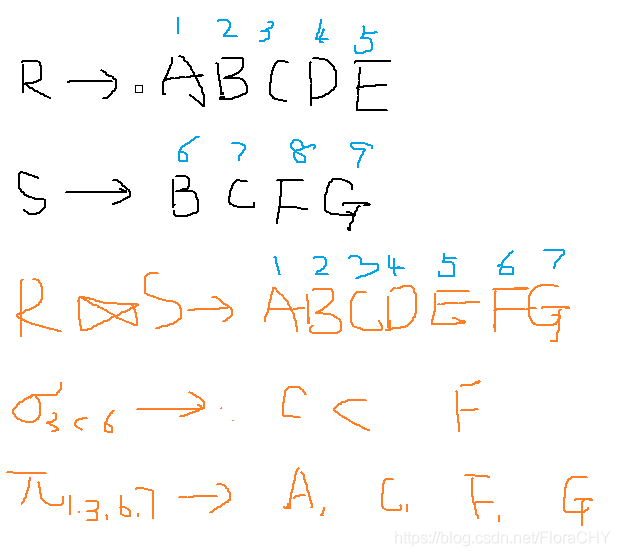 1 2 3 4 5
R → . A B C D E
6 7 8 9
S → B C F G
1 2 3 4 5 6 7
R ⋈ S → A B C D E F G
σ3<6 → C < F
π1.3,6,7 → A, C, F, G
https://blog.csdn.net/FloraCHY